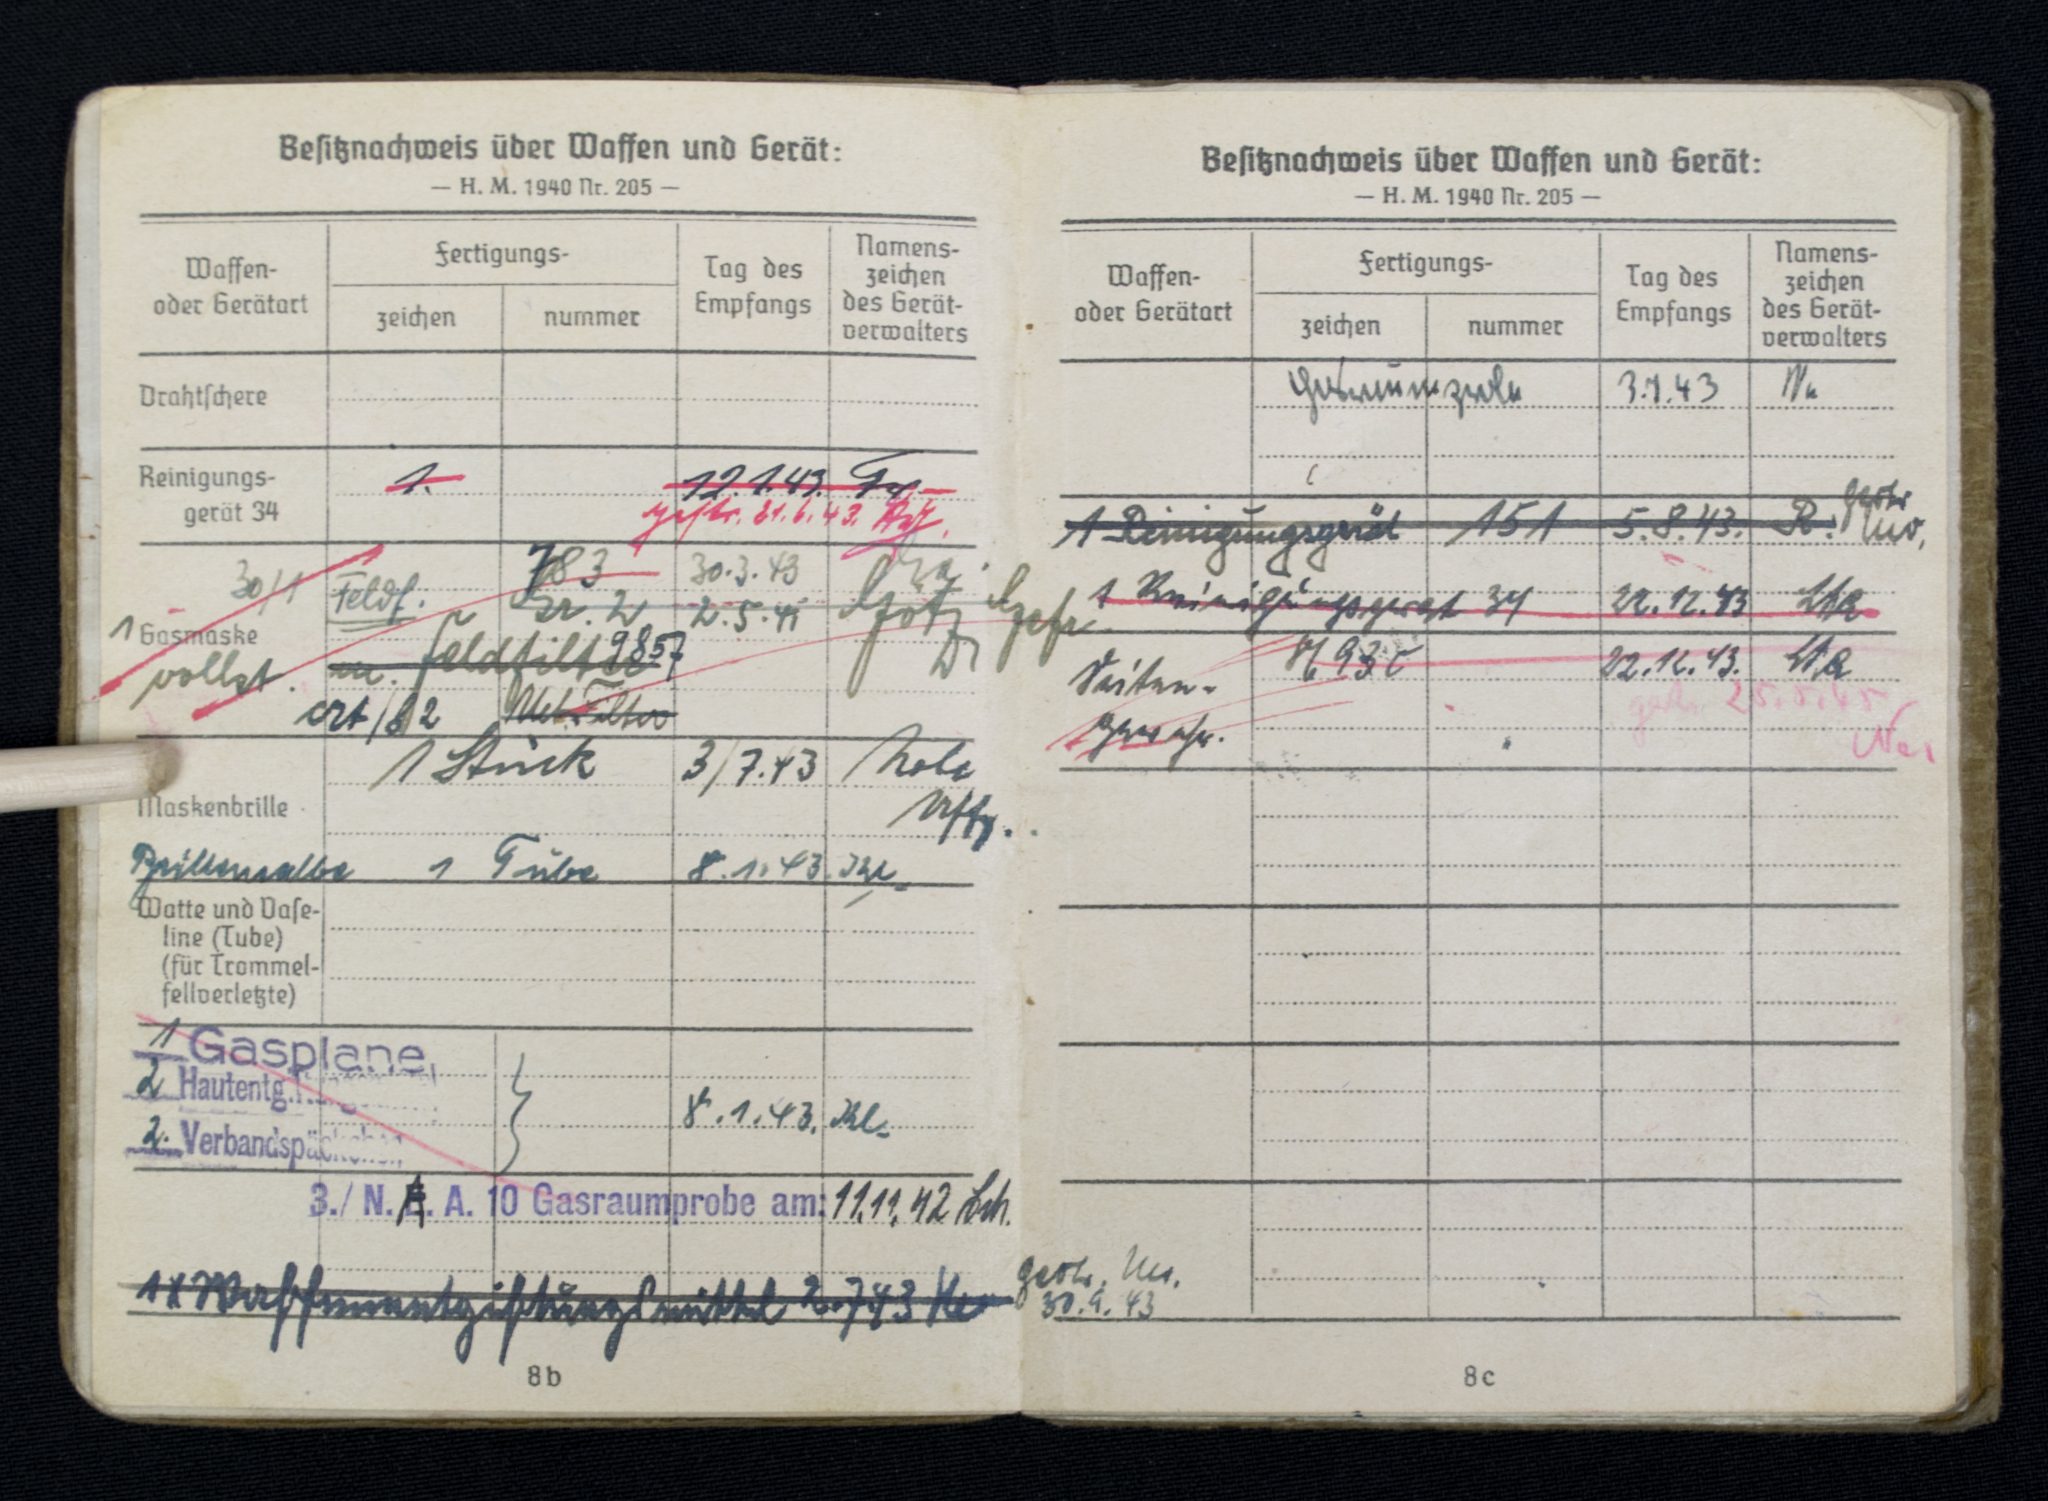 Besitznachweis über Waffen und Gerät:
— H. M. 1940 Nr. 205 —
Waffen-
oder Gerätart
Fertigungs-
zeichen
nummer
Tag des
Empfangs
Namens-
zeichen
des Gerät-
verwalters
Drahtschere
Reinigungs-
gerät 34
1.
12.1.43.
gestr. 21.6.43.
30/1
Feldf.
783
30.3.43
1 Gasmaske
vollst.
Gr. 2
2.5.41
m. Feldfilter 9857
crt/82
Mit Filter
1 Stück 3/7.43
Uffz.
Maskenbrille
1 Tube 8.1.43.
Watte und Vase-
line (Tube)
(für Trommel-
fellverletzte)
1 Gasplane,
2 Hautentg.
2. Verbandspäckchen
8.1.43. Kl.
3./ N. A. A. 10 Gasraumprobe am: 11.11.42
1 x Waffenentgiftungsmittel 2.7.43
gestr.
30.9.43
8b
Besitznachweis über Waffen und Gerät:
— H. M. 1940 Nr. 205 —
Waffen-
oder Gerätart
Fertigungs-
zeichen
nummer
Tag des
Empfangs
Namens-
zeichen
des Gerät-
verwalters
Gasraumprobe 3.7.43
1 Reinigungsgerät 151 5.8.43. R. gestr.
1 Reinigungsgerät 34 22.12.43
Seiten-
gewehr.
22.12.43.
gestr. 25.5.45
8c